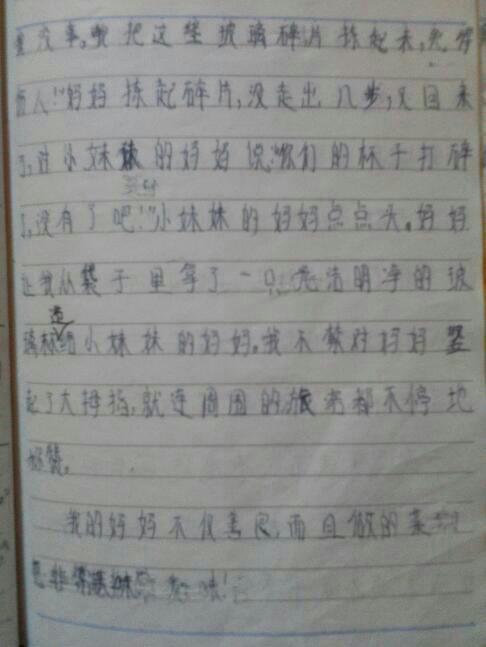 没事,把这些玻璃碎片拣起来,免得
伤人!"妈妈拣起碎片,没走出几步,又回来
了,对小妹妹的妈妈说:"你们的杯子打碎
了,没有了吧!"小妹妹的妈妈点点头。妈妈
让我从袋子里拿了一只光洁明净的玻
璃杯递给小妹妹的妈妈。我不禁对妈妈竖
起了大拇指,就连周围的旅客都不停地
称赞。
我的妈妈不仅善良,而且做的菜
也非常 美味!